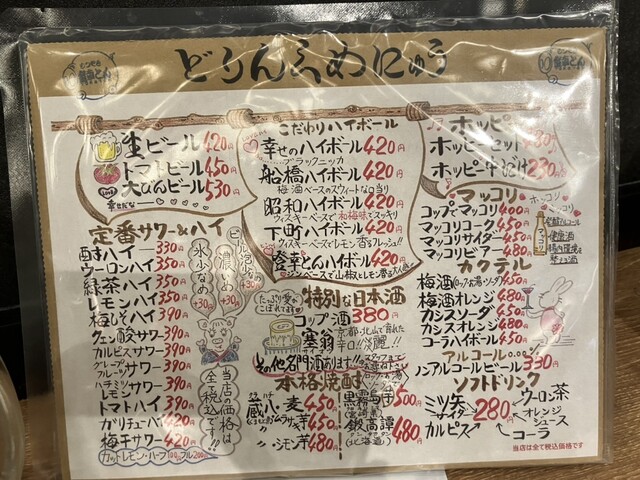 どりんくめにゅう
生ビール 420円
トマトビール 450円
大びんビール 530円
幸せだな~
定番サワー&ハイ
酎ハイ 330円
ウーロンハイ 350円
緑茶ハイ 350円
紅茶ハイ 350円
レモンハイ 350円
梅しそハイ 390円
クエン酸サワー 390円
カルピスサワー 390円
グレープフルーツサワー 390円
ハチミツレモンサワー 390円
トマトハイ 390円
ガリチューハイ 420円
梅干サワー 420円
カットレモン・ハーフ100円 フル200円
濃いめ +30円
氷少なめ +30円
当店の価格は全て税込です!!
こだわりハイボール
幸せのハイボール 420円
ブラックニッカ
船橋ハイボール 420円
梅酒ベースのスウィートな口当り
昭和ハイボール 420円
ウィスキーベースで和梅味でスッキリ
下町ハイボール 420円
ウィスキーベースでレモン香るフレッシュ!!
登幸とんハイボール 420円
特別な日本酒
たっぷり愛がこぼれてます
コップ酒 380円
塞翁
その他名門酒あります!!
本格焼酎
蔵八・麦 450円
ムラサキ芋 450円
〃・シモン芋 480円
黒霧島 500円
鍛高譚 480円
ホッピー
ホッピーセット 480円
ホッピー中だけ 230円
マッコリ
コップでマッコリ 400円
マッコリコーク 450円
マッコリサイダー 450円
マッコリビアー 480円
ホッコリ
マッコリ
カクテル
梅酒(ロック・お湯・ソーダ) 450円
梅酒オレンジ 480円
カシスソーダ 450円
カシスオレンジ 480円
コーラハイボール 450円
アルコール0.00
ノンアルコールビール 330円
ソフトドリンク
ミツ矢サイダー
カルピス
280円
ウーロン茶
オレンジジュース
コーラ
当店は全て税込価格です